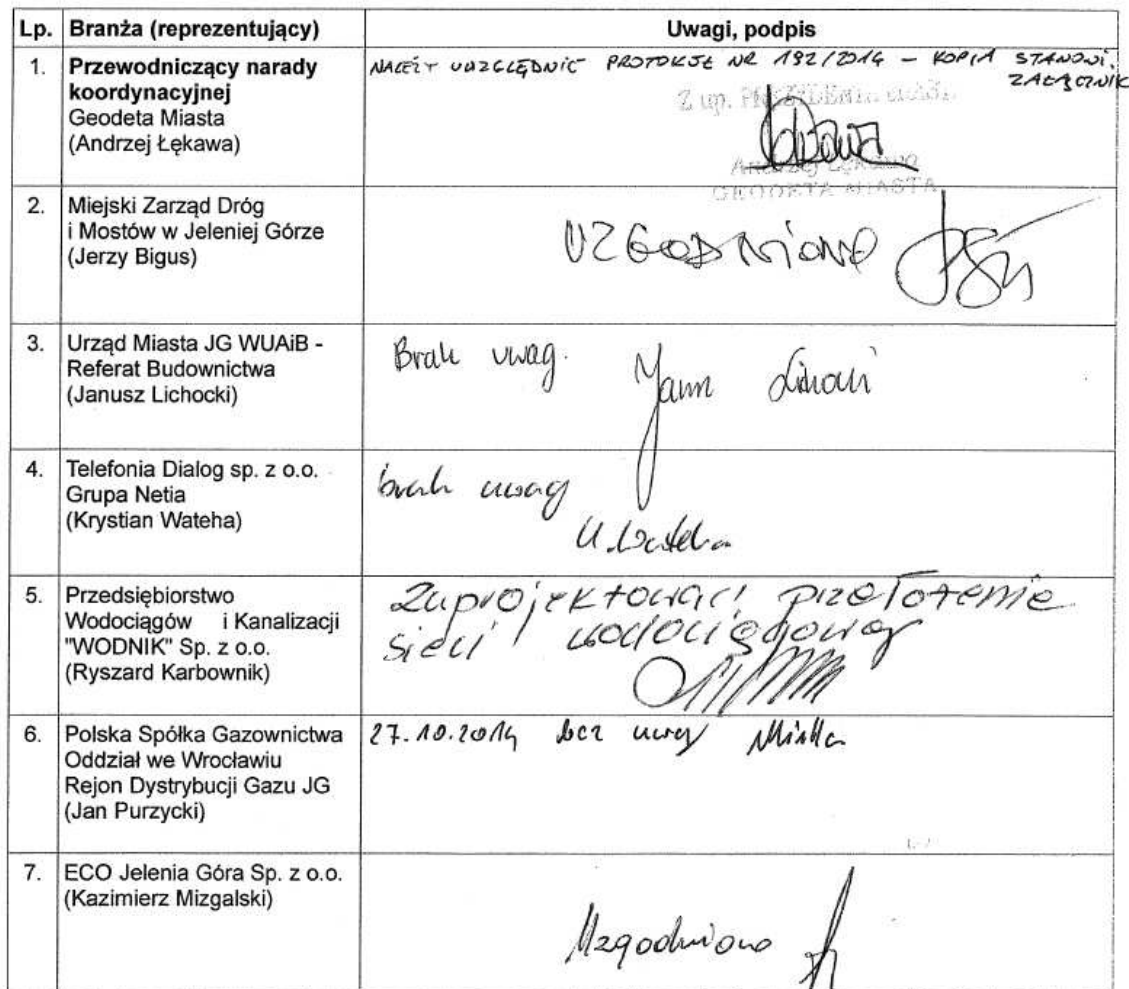 Lp. Branża (reprezentujący) Uwagi, podpis
1. Przewodniczący narady
koordynacyjnej
Geodeta Miasta
(Andrzej Łękawa)
NALEŻY UWZGLĘDNIĆ PROTOKÓŁ NR 192/2014 - KOPIA STANOWI
ZAŁĄCZNIK
Z up. PREZYDENTA MIASTA
Andrzej Łękawa
GEODETA MIASTA
2. Miejski Zarząd Dróg
i Mostów w Jeleniej Górze
(Jerzy Bigus)
UZGODNIONO
3. Urząd Miasta JG WUAiB -
Referat Budownictwa
(Janusz Lichocki)
Brak uwag.
4. Telefonia Dialog sp. z o.o.
Grupa Netia
(Krystian Wateha)
brak uwag
K. Wateha
5. Przedsiębiorstwo
Wodociągów i Kanalizacji
"WODNIK" Sp. z o.o.
(Ryszard Karbownik)
Zaprojektować przełożenie
sieci wodociągowej
6. Polska Spółka Gazownictwa
Oddział we Wrocławiu
Rejon Dystrybucji Gazu JG
(Jan Purzycki)
27.10.2014 bez uwag
7. ECO Jelenia Góra Sp. z o.o.
(Kazimierz Mizgalski)
Uzgodniono